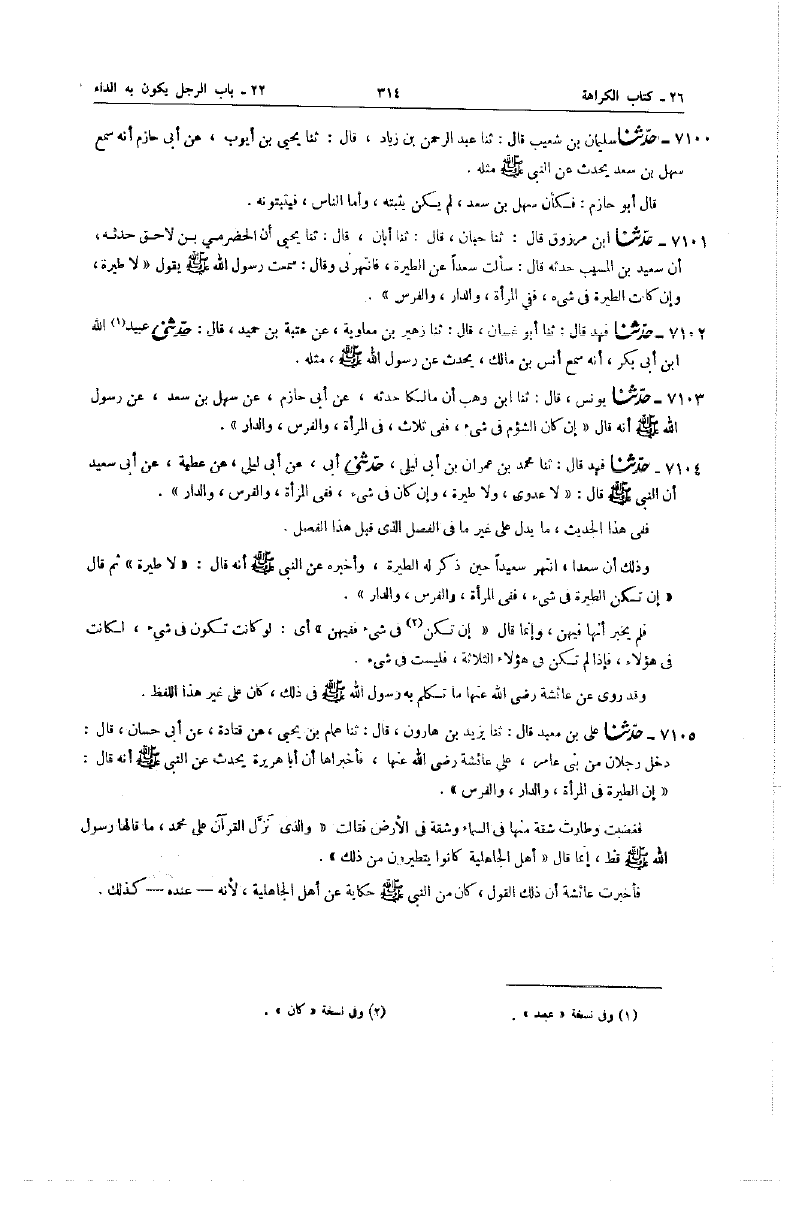 ٢٦ - كتاب الكراهة ٣١٤ ٢٢ - باب الرجل يكون به الداء
٧١٠٠ - حدثنا سليمان بن شعيب قال : ثنا عبد الرحمن بن زياد ، قال : ثنا يحيى بن أيوب ، عن أبى حازم أنه سمع
سهل بن سعد يحدث عن النبي ﷺ مثله .
قال أبو حازم : فكأن سهل بن سعد ، لم يكن يثبته ، وأما الناس ، فيثبتونه .
٧١٠١ - حدثنا ابن مرزوق قال : ثنا حبان ، قال : ثنا أبان ، قال : ثنا يحيى أن الحضرمي بن لاحق حدثه ،
أن سعيد بن المسيب حدثه قال : سألت سعداً عن الطيرة ، فانتهرنى وقال : سمعت رسول الله ﷺ يقول « لا طيرة ،
وإن كانت الطيرة فى شىء ، ففي المرأة ، والدار ، والفرس » .
٧١٠٢ - حدثنا فهد قال : ثنا أبو غسان ، قال : ثنا زهير بن معاوية ، عن عتبة بن حميد ، قال : حدثنى عبيد(١) الله
ابن أبى بكر ، أنه سمع أنس بن مالك ، يحدث عن رسول الله ﷺ ، مثله .
٧١٠٣ - حدثنا يونس ، قال : ثنا ابن وهب أن مالكا حدثه ، عن أبى حازم ، عن سهل بن سعد ، عن رسول
الله ﷺ أنه قال « إن كان الشؤم فى شىء ، ففى ثلاث ، فى المرأة ، والفرس ، والدار » .
٧١٠٤ - حدثنا فهد قال : ثنا محمد بن عمران بن أبى ليلى ، حدثنى أبى ، عن أبى ليلى ، عن عطية ، عن أبى سعيد
أن النبى ﷺ قال : « لا عدوى ، ولا طيرة ، وإن كان فى شىء ، ففى المرأة ، والفرس ، والدار » .
ففى هذا الحديث ، ما يدل على غير ما فى الفصل الذى قبل هذا الفصل .
وذلك أن سعدا ، انتهر سعيداً حين ذكر له الطيرة ، وأخبره عن النبى ﷺ أنه قال : « لا طيرة » ثم قال
« إن تكن الطيرة فى شىء ، ففى المرأة ، والفرس ، والدار » .
فلم يخبر أنها فيهن ، وإنما قال « إن تكن(٢) فى شىء ففيهن » أى : لو كانت تكون فى شىء ، لكانت
فى هؤلاء ، فإذا لم تكن فى هؤلاء الثلاثة ، فليست فى شىء .
وقد روى عن عائشة رضى الله عنها ما تكلم به رسول الله ﷺ فى ذلك ، كان على غير هذا اللفظ .
٧١٠٥ - حدثنا على بن معبد قال : ثنا يزيد بن هارون ، قال : ثنا همام بن يحيى ، عن قتادة ، عن أبى حسان ، قال :
دخل رجلان من بنى عامر ، على عائشة رضى الله عنها ، فأخبراها أن أبا هريرة يحدث عن النبى ﷺ أنه قال :
« إن الطيرة فى المرأة ، والدار ، والفرس » .
فغضبت وطارت شقة منها فى السماء وشقة فى الأرض فقالت « والذى نزَّل القرآن على محمد ، ما قالها رسول
الله ﷺ قط ، إنما قال « أهل الجاهلية كانوا يتطيرون من ذلك » .
فأخبرت عائشة أن ذلك القول ، كان من النبى ﷺ حكاية عن أهل الجاهلية ، لأنه — عنده — كذلك .
(١) وفى نسخة « عبد » . (٢) وفى نسخة « كان » .